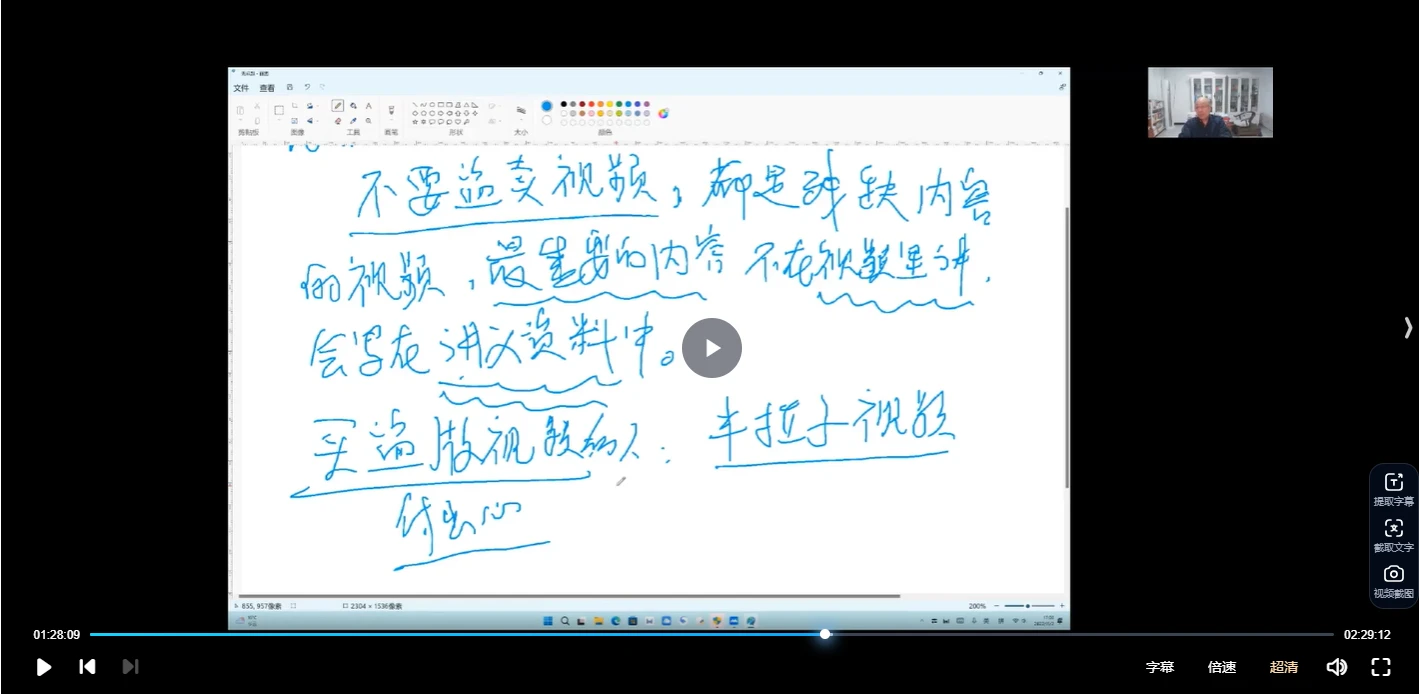 文件 查看
剪贴板 图像 工具 画笔 形状 大小 颜色
不要盗卖视频，都是残缺内容
的视频，最重要的内容 不在视频里讲，
会写在讲义资料中。
买盗版视频的人：半拉子视频
付出心
855, 957像素 2304 × 1536像素 200%
提取字幕
截取文字
视频截图
01:28:09 02:29:12
字幕 倍速 超清